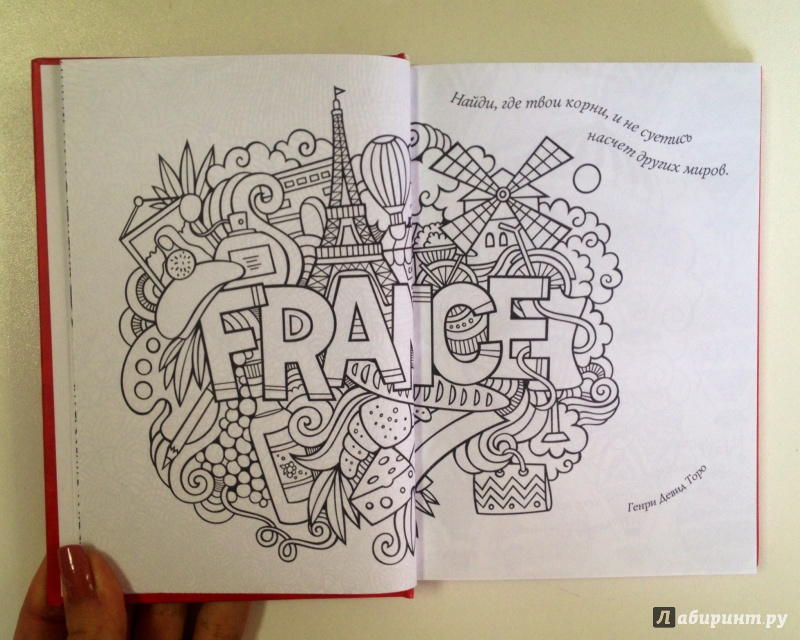 Найди, где твои корни, и не суетись
насчет других миров.
FRANCE
Генри Девид Торо
Лабиринт.ру